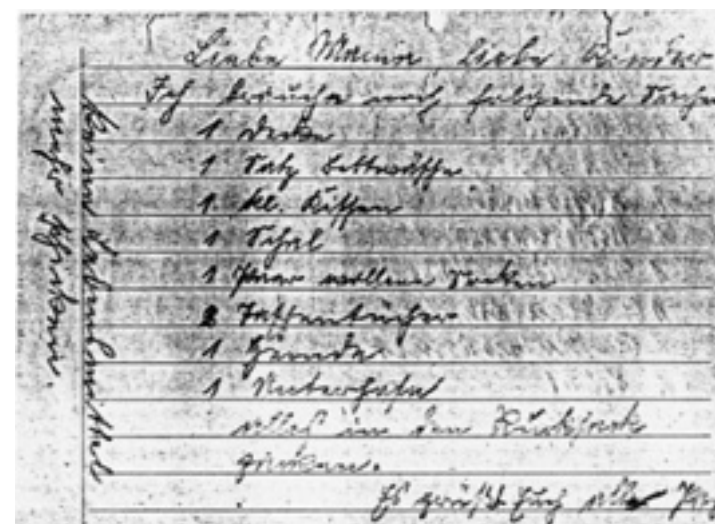 Liebe Mama, liebe Kinder
Ich brauche noch folgende Sachen
1 Decke
1 Satz Bettwäsche
1 kl. Kissen
1 Schal
1 Paar wollene Socken
2 Taschentücher
1 Hemde
1 Unterhose
alles in den Rucksack
packen.
Es grüßt Euch alle
Keine Lebensmittel
mehr schicken.